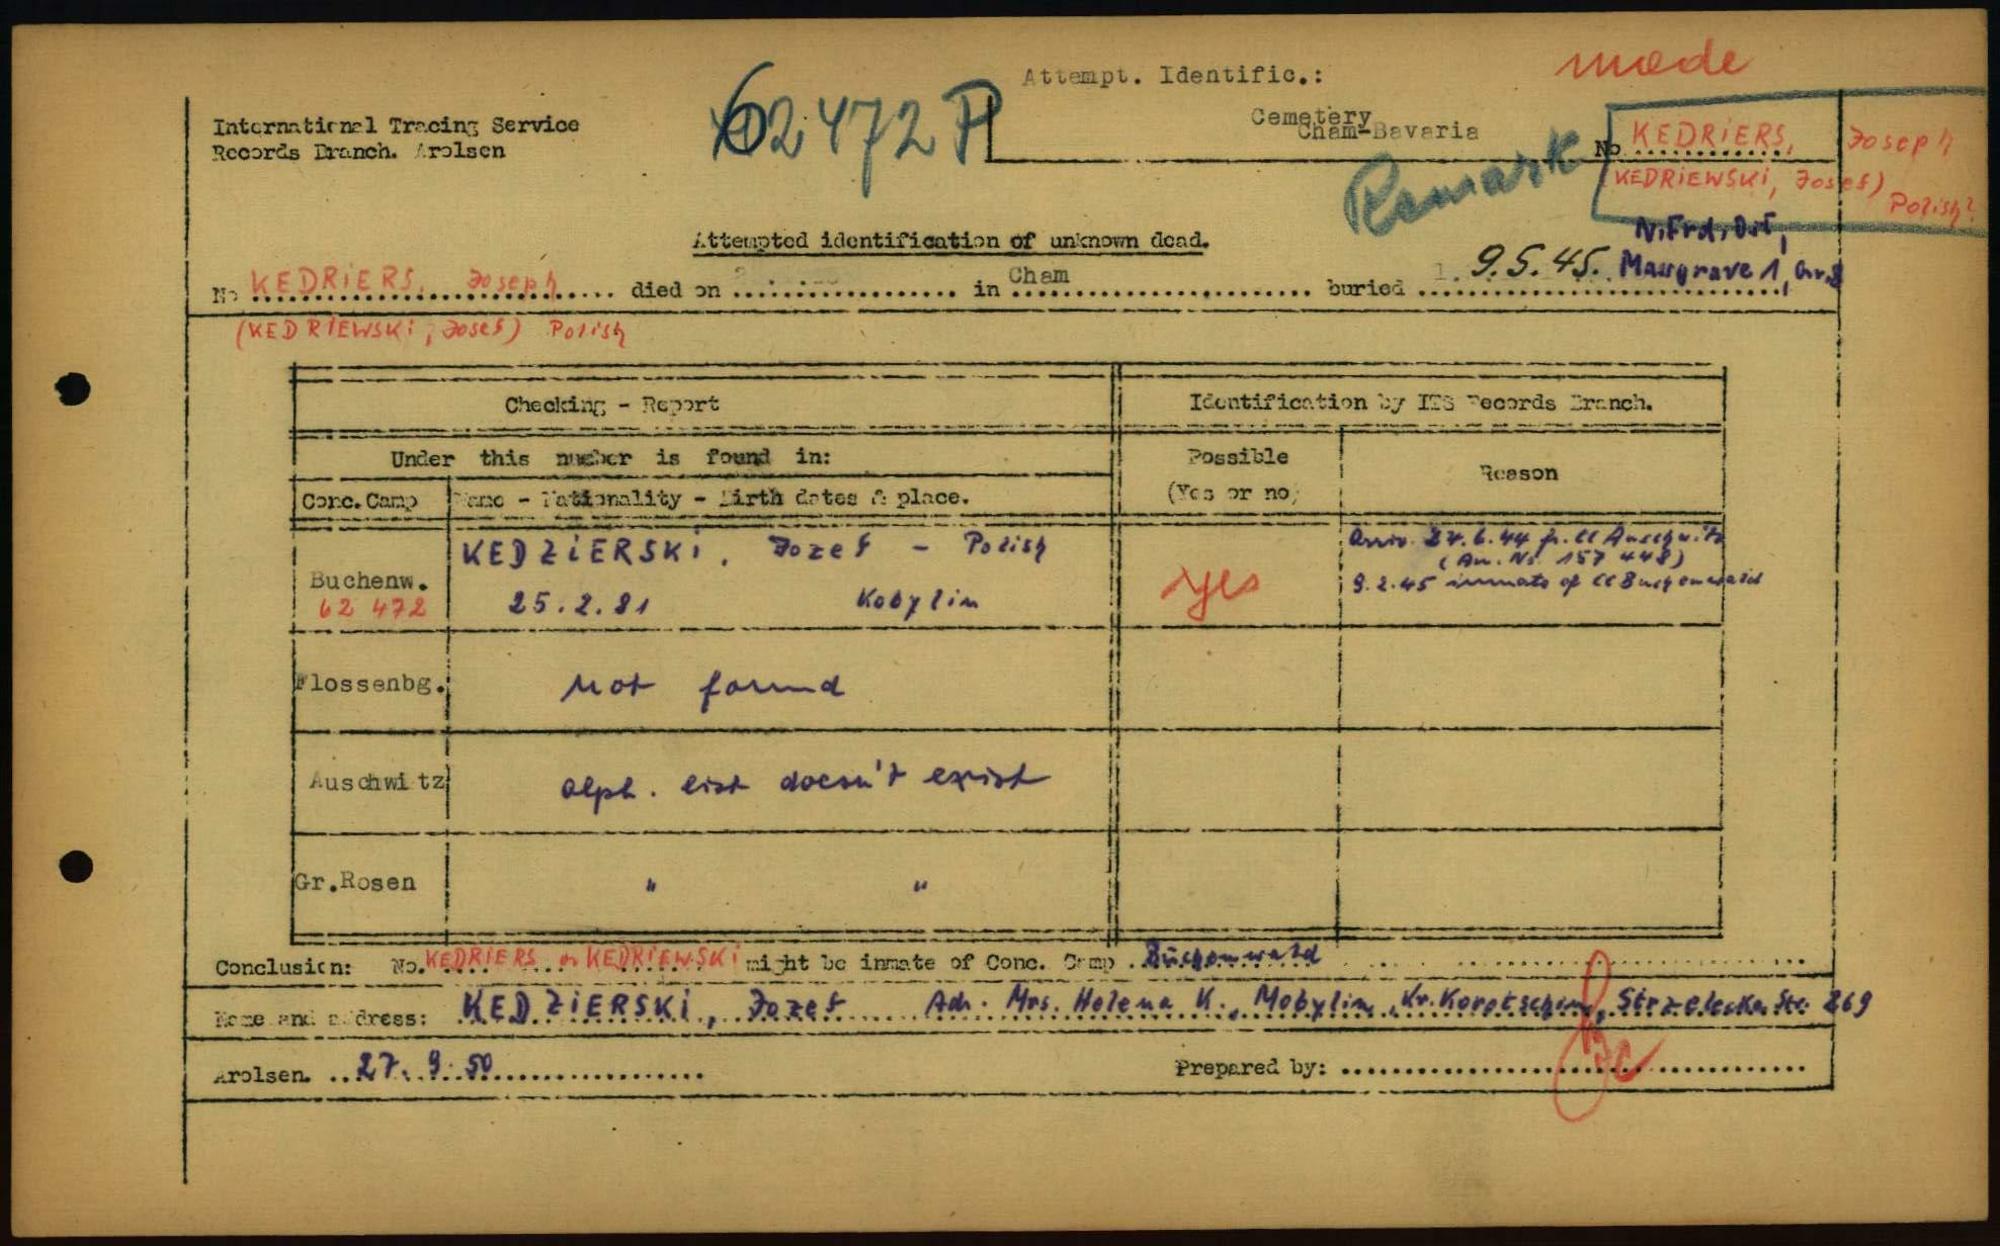 made
Attempt. Identific.:
International Tracing Service
Records Branch. Arolsen
62472 P
Cemetery
Cham-Bavaria
No KEDRIERS, Joseph
(KEDRIEWSKI, Josef)
Polish?
Remark
Attempted identification of unknown dead.
No KEDRIERS, Joseph died on in Cham buried 9.5.45. Massgrave 1,
(KEDRIEWSKI, Josef) Polish
Checking - Report
Identification by ITS Records Branch.
Under this number is found in:
Possible
(Yes or no)
Reason
Conc.Camp
Name - Nationality - Birth dates & place.
Buchenw.
62 472
KEDZIERSKI, Jozef - Polish
25.2.81 Kobylin
yes
Arriv. 27.6.44 fr. CC Auschwitz
(Au. No. 157 448)
9.2.45 inmate of CC Buchenwald
Flossenbg.
Not found
Auschwitz
alph. list doesn't exist
Gr.Rosen
" "
Conclusion: No. KEDRIERS or KEDRIEWSKI might be inmate of Conc. Camp Buchenwald
Name and address: KEDZIERSKI, Jozef Adr. Mrs. Helena K., Mobylin, Kr. Korotschin, Strzelecka Str. 269
Arolsen. 27. 9. 50
Prepared by: